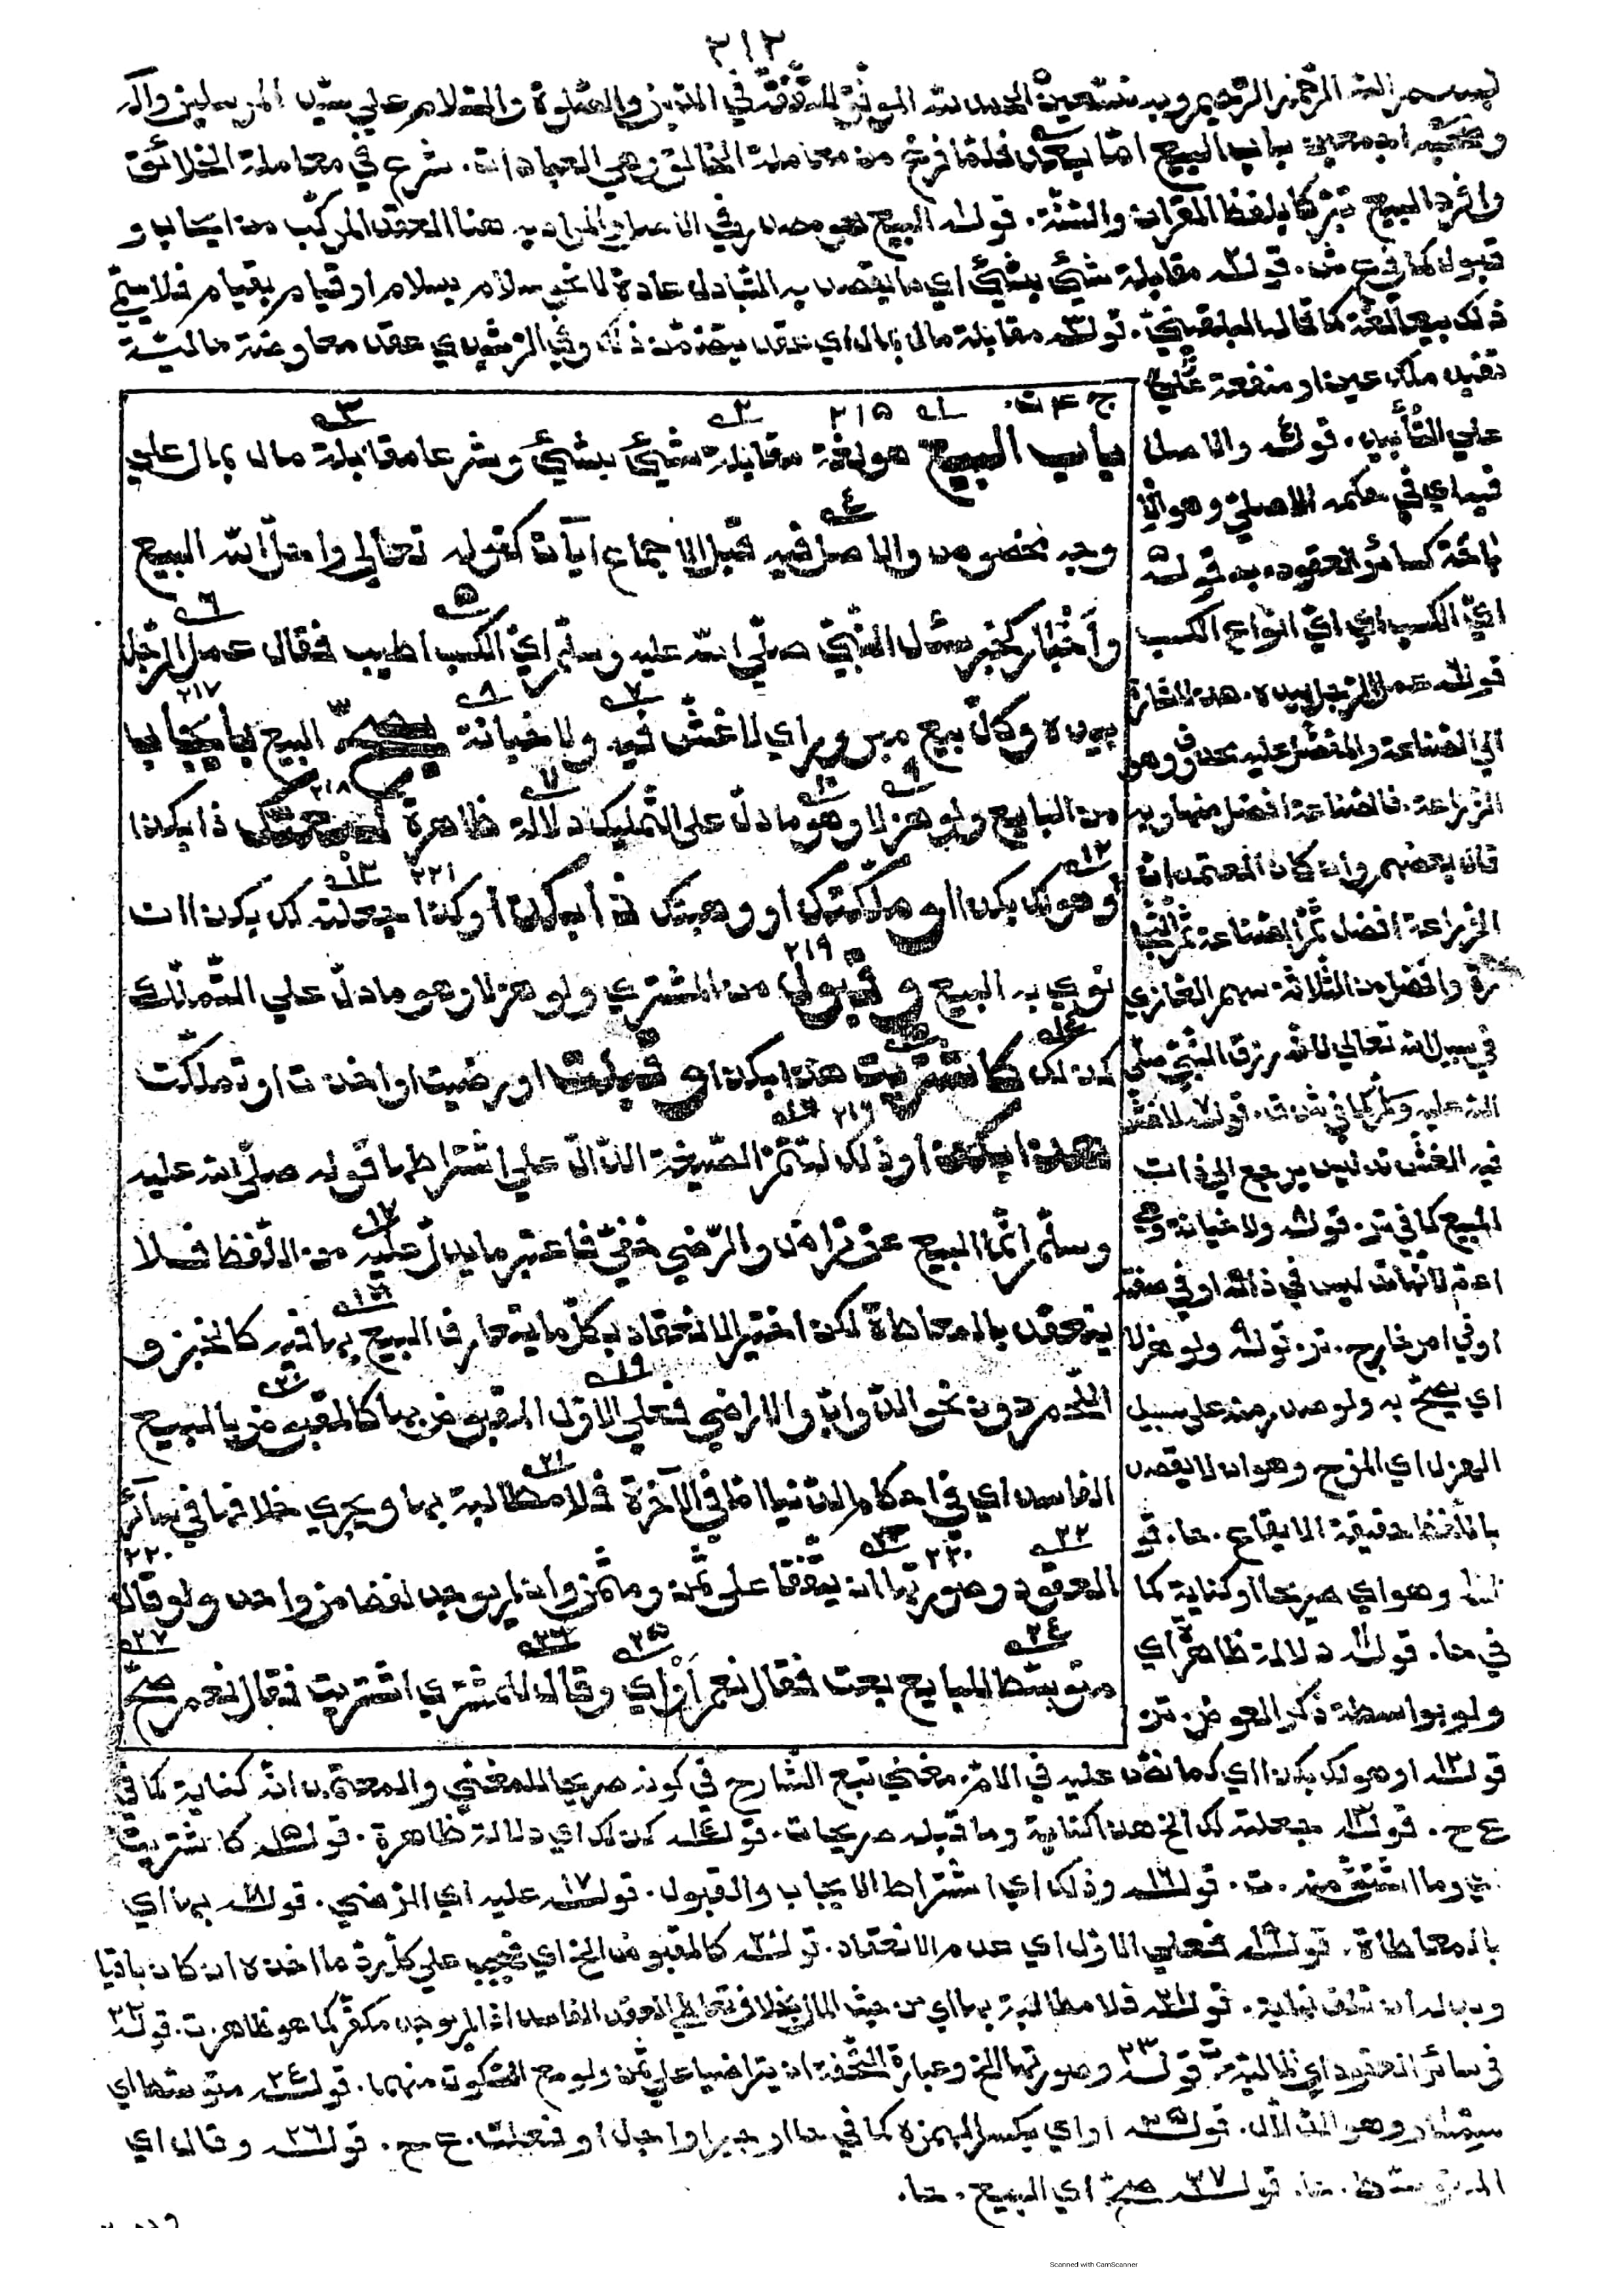 ٢١٢
بسم الله الرحمن الرحيم وبه نستعين الحمد لله الموفق للتفقه في الدين والصلوة والسلام على سيد المرسلين وآله
وصحبه اجمعين باب البيع اما بعد فلما فرغ من معاملة الخالق وهي العبادات. شرع في معاملة الخلائق
وافرد البيع تبركا بلفظ القرآن والسنة. قوله البيع هو مصدر في الاصل والمراد به هنا العقد المركب من ايجاب و
قبول كما في ع ش. قوله مقابلة شيئ بشيئ اي ما يقصد به التبادل عادة لا نحو سلام بسلام او قيام بقيام فلا يسمى
ذلك بيعا لغة كما قاله البلقيني. قوله مقابلة مال بمال اي عقد يتضمن ذلك وفي الرشيدي عقد معاوضة مالية
تفيد ملك عين او منفعة على
على التأبيد. قوله والاصل
فيه اي في حكمه الاصلي وهو الا
باحة كسائر العقود. قوله
اي الكسب اي اي انواع الكسب
قوله عمل الرجل بيده. هذا اشارة
الي الصناعة
الزراعة. فالصناعة افضل منها وبه
قال بعضهم وان كان المعتمد ان
الزراعة افضل ثم الصناعة ثم التجا
رة وافضل من الثلاثة سهم الغازي
في سبيل الله تعالي لانه رزق النبي صلي
الله عليه وسلم كما في ش ت. قوله لا غش
فيه الغش تدليس يرجع الي ذات
المبيع كما في تر. قوله ولا خيانة وهي
اعم لانها تدليس في ذاته او في صفته
او في امر خارج. تر. قوله ولو هزلا
اي يصح به ولو صدر منه على سبيل
الهزل اي المزح وهو ان لا يقصد
باللفظ حقيقة الايقاع. حا. قو
له وهو اي صريحا او كناية كما
في حا. قوله دلالة ظاهرة اي
ولو بواسطة ذكر العوض. تر.
ج ٤ ت. ٢١٥
باب البيع هو لغة مقابلة شيئ بشيئ وشرعا مقابلة مال بمال علي
وجه مخصوص والاصل فيه قبل الاجماع آيات كقوله تعالي واحل الله البيع
وأخبار كخبر سئل النبي صلي الله عليه وسلم اي الكسب اطيب فقال عمل الرجل
٢١٧
بيده وكل بيع مبرور اي لا غش فيه ولا خيانة يصح البيع بايجاب
٢١٨
من البايع ولو هزلا وهو ما دل علي التمليك دلالة ظاهرة كبعتك ذا بكذا
٢٢١
او هو لك بكذا او ملكتك او وهبتك ذا بكذا او كذا جعلته لك بكذا ان
٢١٩
نوي به البيع وقبول من المشتري ولو هزلا وهو ما دل علي التملك
كذلك كاشتريت هذا بكذا وقبلت او رضيت او اخذت او تملكت
٢١٦
هذا بكذا وذلك لتتم الصيغة الدال علي اشتراطها قوله صلي الله عليه
وسلم انما البيع عن تراض والرضي خفي فاعتبر ما يدل عليه من اللفظ فلا
ينعقد بالمعاطاة لكن اختير الانعقاد بكل ما يتعارف البيع بها فيه كالخبز و
اللحم دون نحو الدواب والاراضي فعلي الاول المقبوض بها كالمقبوض بالبيع
الفاسد اي في احكام الدنيا اما في الآخرة فلا مطالبة بها ويجري خلافها في سائر
٢٢٠
العقود وصورتها ان يتفقا علي ثمن ومثمن وان لم يوجد لفظ من واحد ولو قال
متوسط للبايع بعت فقال نعم أو إي وقال للمشتري اشتريت فقال نعم صح
قوله او هو لك بكذا اي كما نص عليه في الام. مغني تبع الشارح في كونه صريحا للمغني والمعتمد انه كناية كما في
ع ح. قوله جعلته لك الخ هذا كناية وما قبله صريحات. قوله كذلك اي دلالة ظاهرة. قوله كاشتريت
وما اشتق منه. ت. قوله وذلك اي اشتراط الايجاب والقبول. قوله عليه اي الرضي. قوله بها اي
بالمعاطاة. قوله فعلي الاول اي عدم الانعقاد. قوله كالمقبوض الخ اي فيجب علي كل رد ما اخذه ان كان باقيا
وبدله ان تلف نهاية. قوله فلا مطالبة بها اي من حيث المال بخلاف تعاطي العقد الفاسد اذا لم يوجد مكفر كما هو ظاهر. ت. قوله
في سائر العقود اي المالية. ت قوله وصورتها الخ وعبارة التحفة ان يتراضيا علي ثمن ولو مع السكوت منهما. قوله متوسط اي
سمسار وهو الدلال. قوله او اي بكسر الهمزة كما في حا او جير او اجل او فعلت. ع ح. قوله وقال اي
المتوسط. حا. قوله صح اي البيع. حا.
Scanned with CamScanner